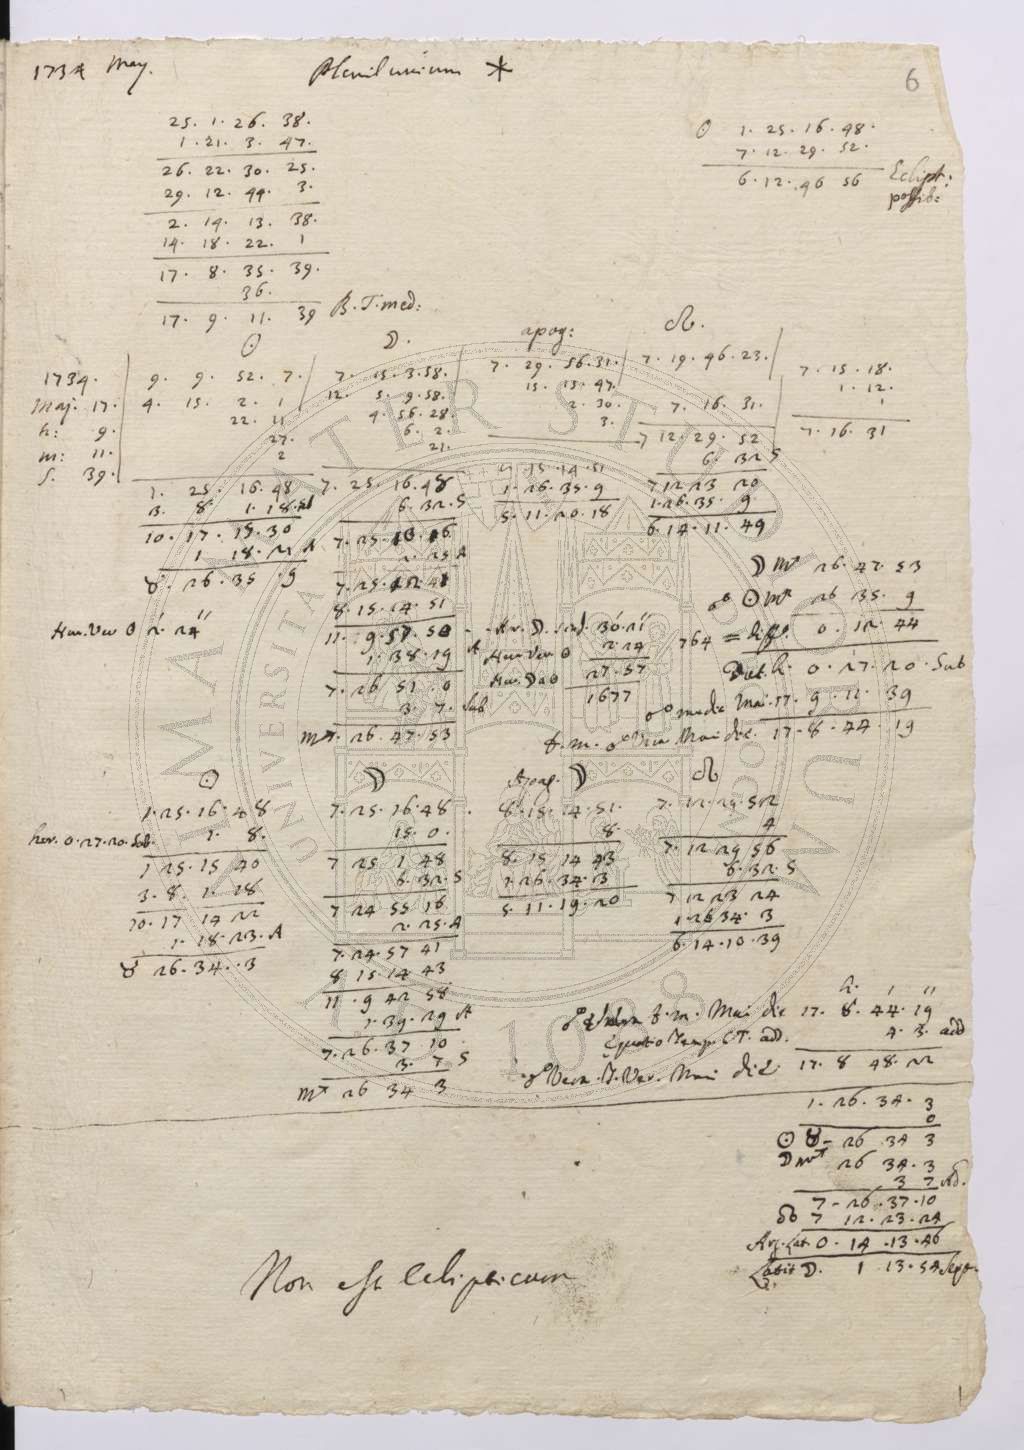 1734 May. Plenilunium
6
25. 1. 26. 38.
1. 21. 3. 47.
26. 22. 30. 25.
29. 12. 44. 3.
2. 14. 13. 38.
14. 18. 22. 1
17. 8. 35. 39.
36.
17. 9. 11. 39 T. med:
☉ 1. 25. 16. 48.
7. 12. 29. 52.
6. 12. 46 56 Eclipt:
possib:
☉ ☽. apog: ☊.
1734. 9. 9. 52. 7. 7. 15. 3. 58. 7. 29. 56. 31. 7. 19. 46. 23. 7. 15. 18.
Maj. 17. 4. 15. 2. 1 12. 5. 9. 58. 15. 15. 47. 7. 16. 31. 1. 12.
h: 9. 22. 11 4. 56. 28. 2. 30. 7 12. 29. 52 1
m: 11. 27. 6. 2. 3. 6. 32 S 7. 16 31
s. 39. 2 21.
1. 25. 16. 48 7. 25. 16. 48 8 15. 14. 51 7 12 23 20
3. 8 1. 18. 6. 32. S 1. 26. 35. 9 1. 26. 35. 9.
10. 17. 15. 30 5. 11. 20. 18 6. 14. 11. 49
1. 18. 22 A 2. 25 A
♉. 26. 35. 9 7. 25. 12 41
8. 15. 14. 51
11. 9. 57. 50
1. 38. 19 A
7. 26 51. 0
3. 7. Sub
26. 47. 53
Hor. Ver ☉ 2. 24
30. 21
Hor. Ver ☉ 2. 24
Hor. 27. 57
1677
☽ 26. 47. 53
☍ ☉ 26 35. 9
764 = diff. 0. 12. 44
h. 0. 27. 20. Sub
☍ media Mai. 17. 9. 11. 39
☍ Vera Mai die. 17. 8. 44. 19
☉ ☽ Apog. ☽ ☊
1. 25. 16. 48 7. 25. 16. 48. 8. 15. 14. 51. 7. 12. 29. 52
hor. 0. 27. 20. Sub. 1. 8. 15. 0. 8. 4
1 25. 15 40 7 25 1 48 8. 15 14 43 7. 12 29 56
3. 8. 1. 18 6. 32. S 1. 26. 34. 3 6. 32. S
10. 17 14 22 7 24 55 16 5. 11. 19. 20 7 12 23 24
1. 18. 23. A 2. 25. A 1. 26 34. 3
♉ 26. 34. 3 7. 24. 57 41 6. 14. 10. 39
8 15. 14 43
11. 9 42 58
1. 39. 29 A
7. 26. 37 10.
3. 7 S
26 34 3
h. ′ ″
Mai die 17. 8. 44. 19
Equatio Temp. add. 4. 3. add
☍ Vera. T. Ver. Mai die 17. 8 48. 22
1. 26. 34. 3
0
☉ ♉ 26 34 3
☽ 26 34. 3
3 7 Ad.
7 26. 37. 10
☊ 7 12. 23. 24
Arg. Lat 0. 14. 13. 46
Latit ☽. 1 13. 54 Sept.
Non est Eclipticum